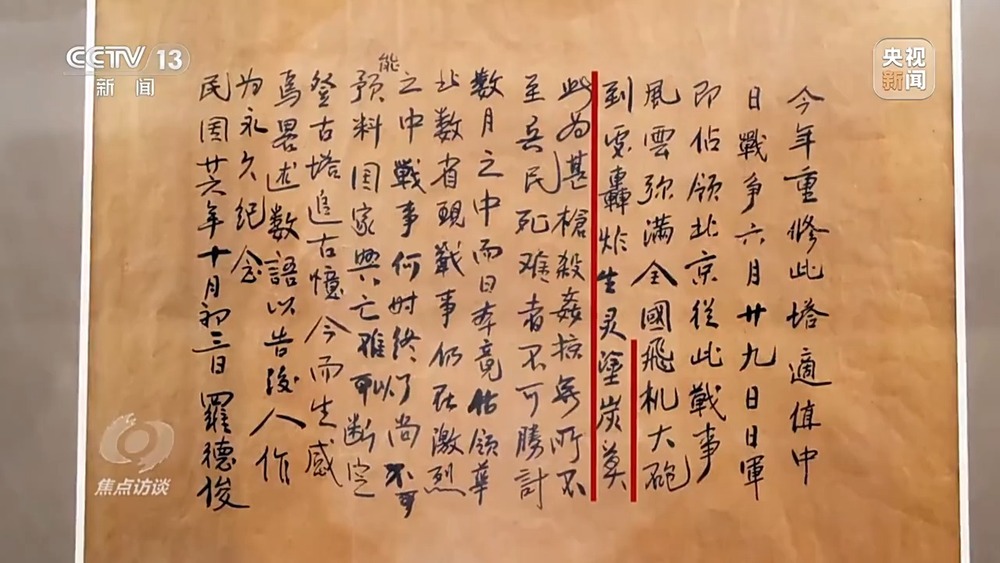 CCTV 13
新闻
央视
新闻
今年重修此塔適值中
日戰争六月廿九日日軍
即佔領北京從此戰事
風雲弥满全國飛机大砲
到處轟炸生灵塗炭莫
此为甚槍殺姦掠無所不
至兵民死难者不可勝計
数月之中而日本竟佔領華
北数省現戰事仍在激烈
之中戰事何时终了尚不可
能
预料国家興亡难以断定
登古塔追古憶今而生感
焉畧述数語以告後人作
为永久紀念
民国廿六年十月初三日羅德俊
焦点访谈